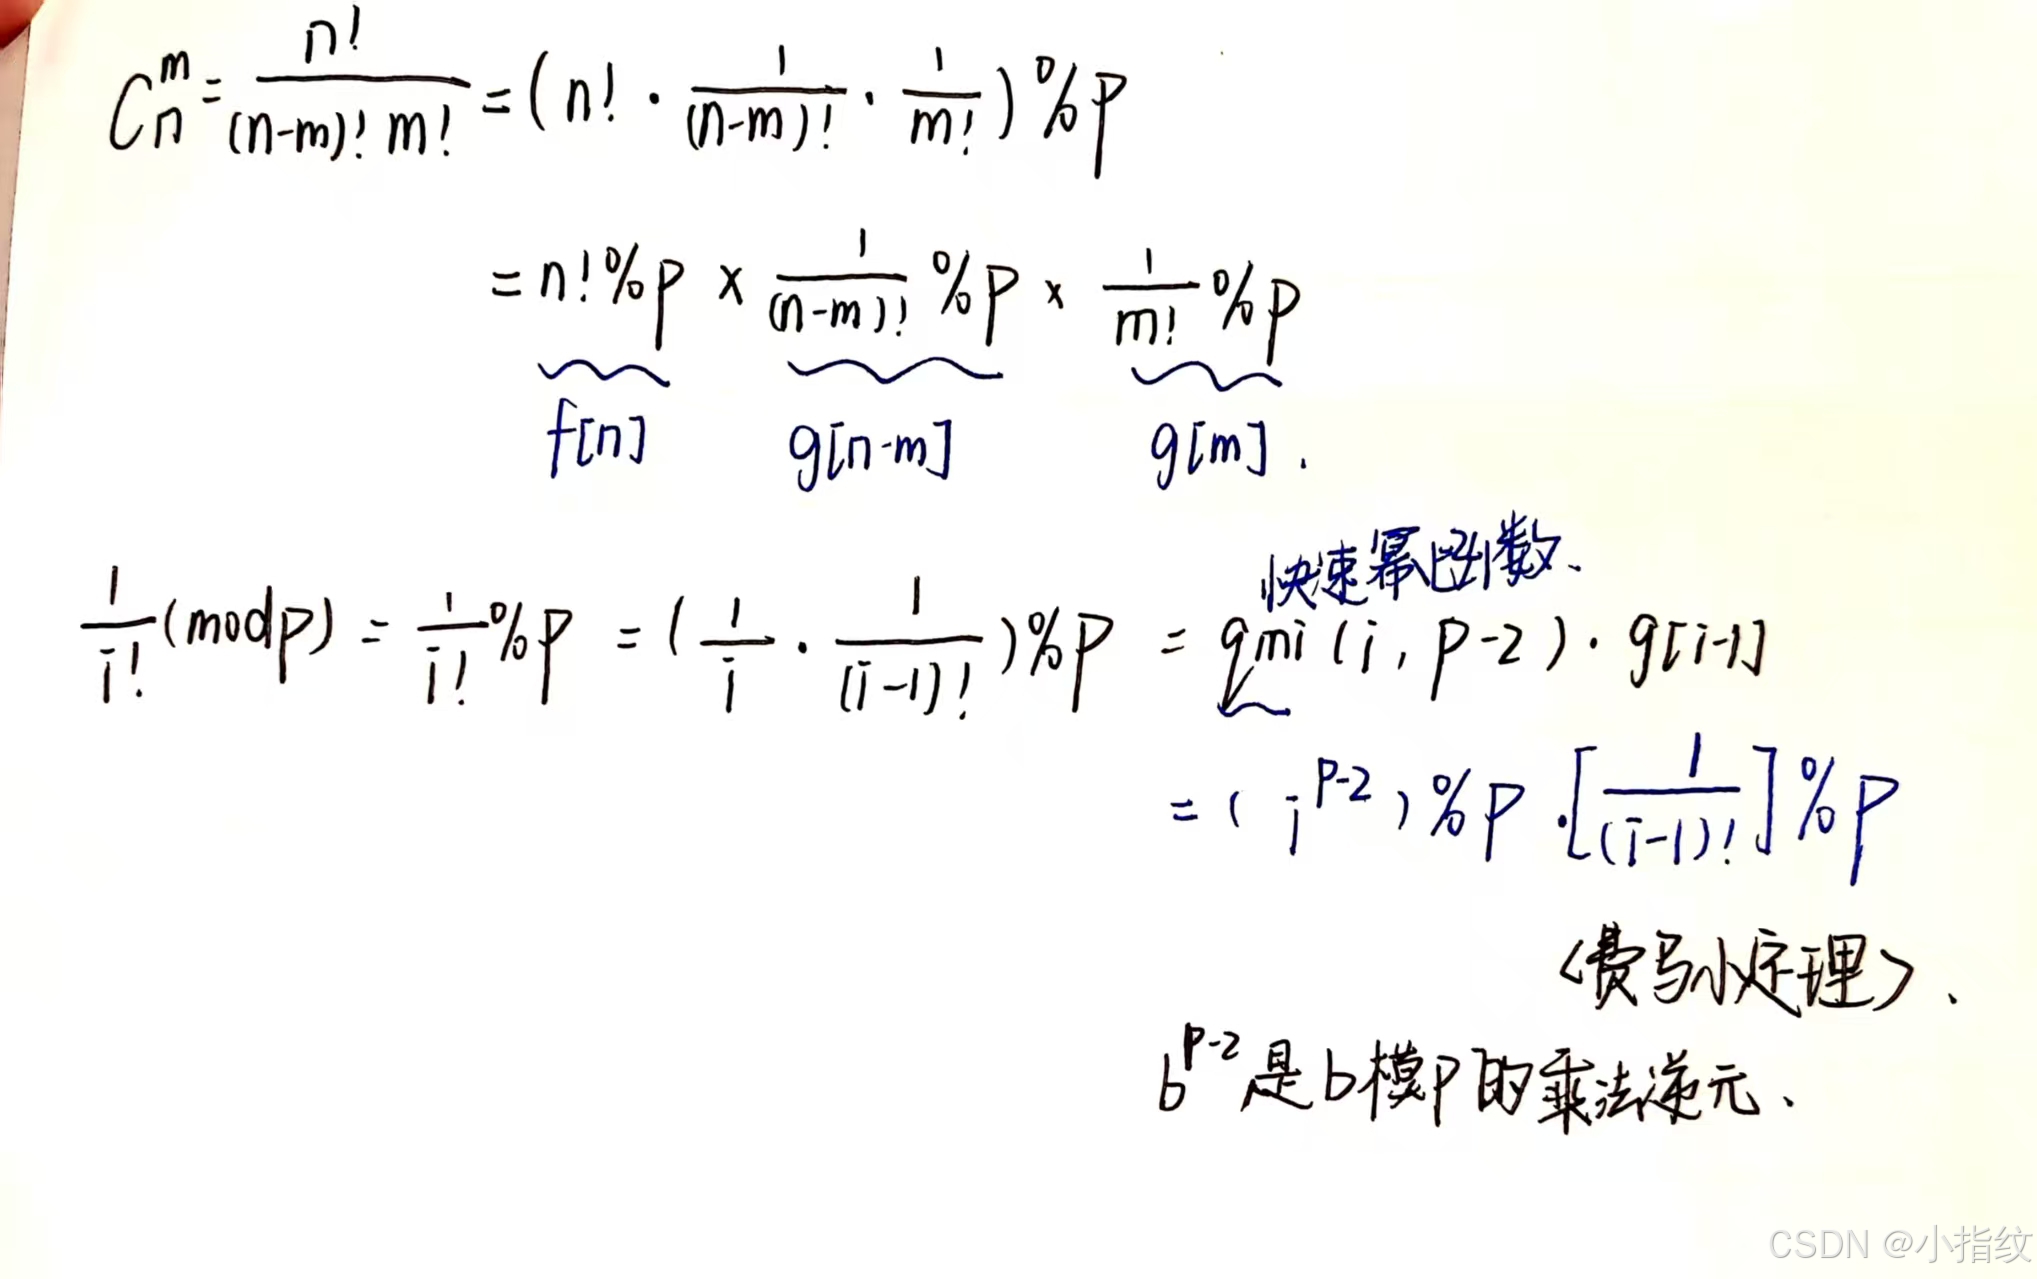 C_n^m = n! / ((n-m)! m!) = (n! · 1/(n-m)! · 1/m!) % p
= n! % p × 1/(n-m)! % p × 1/m! % p
f[n] g[n-m] g[m] .
快速幂函数、
1/i! (mod p) = 1/i! % p = (1/i · 1/(i-1)!) % p = qmi (i, p-2) · g[i-1]
= ( i^{p-2} ) % p · [1/(i-1)!] % p
<费马小定理> 、
b^{p-2} 是 b 模 p 的乘法逆元、
CSDN @小指纹